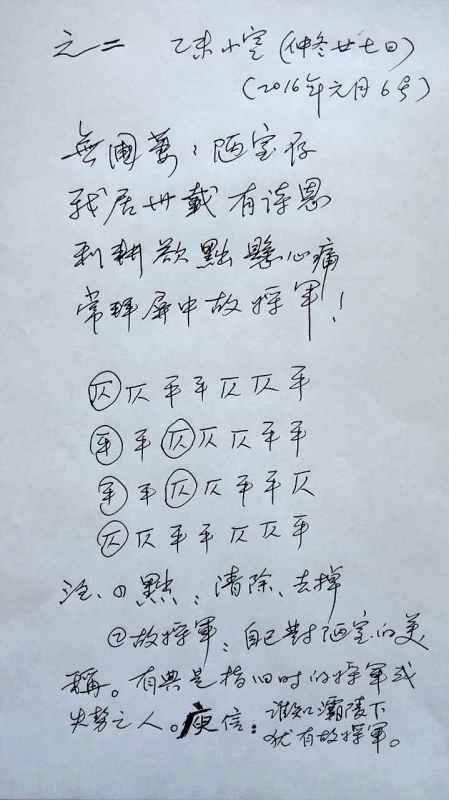 之二 乙未小寒(仲冬廿七日)
(2016年元月6号)
無 陋室存
我居卅載有 恩
欲點懸心痛
常 屏中故將軍!
仄仄平平仄仄平
平平仄仄仄平平
平平仄仄平平仄
仄仄平平仄仄平
注、①點:清除、去掉
②故將軍:自己對陋室的美
稱。有典是指旧时的將軍或
失勢之人。庾信:誰知灞陵下
犹有故將軍。